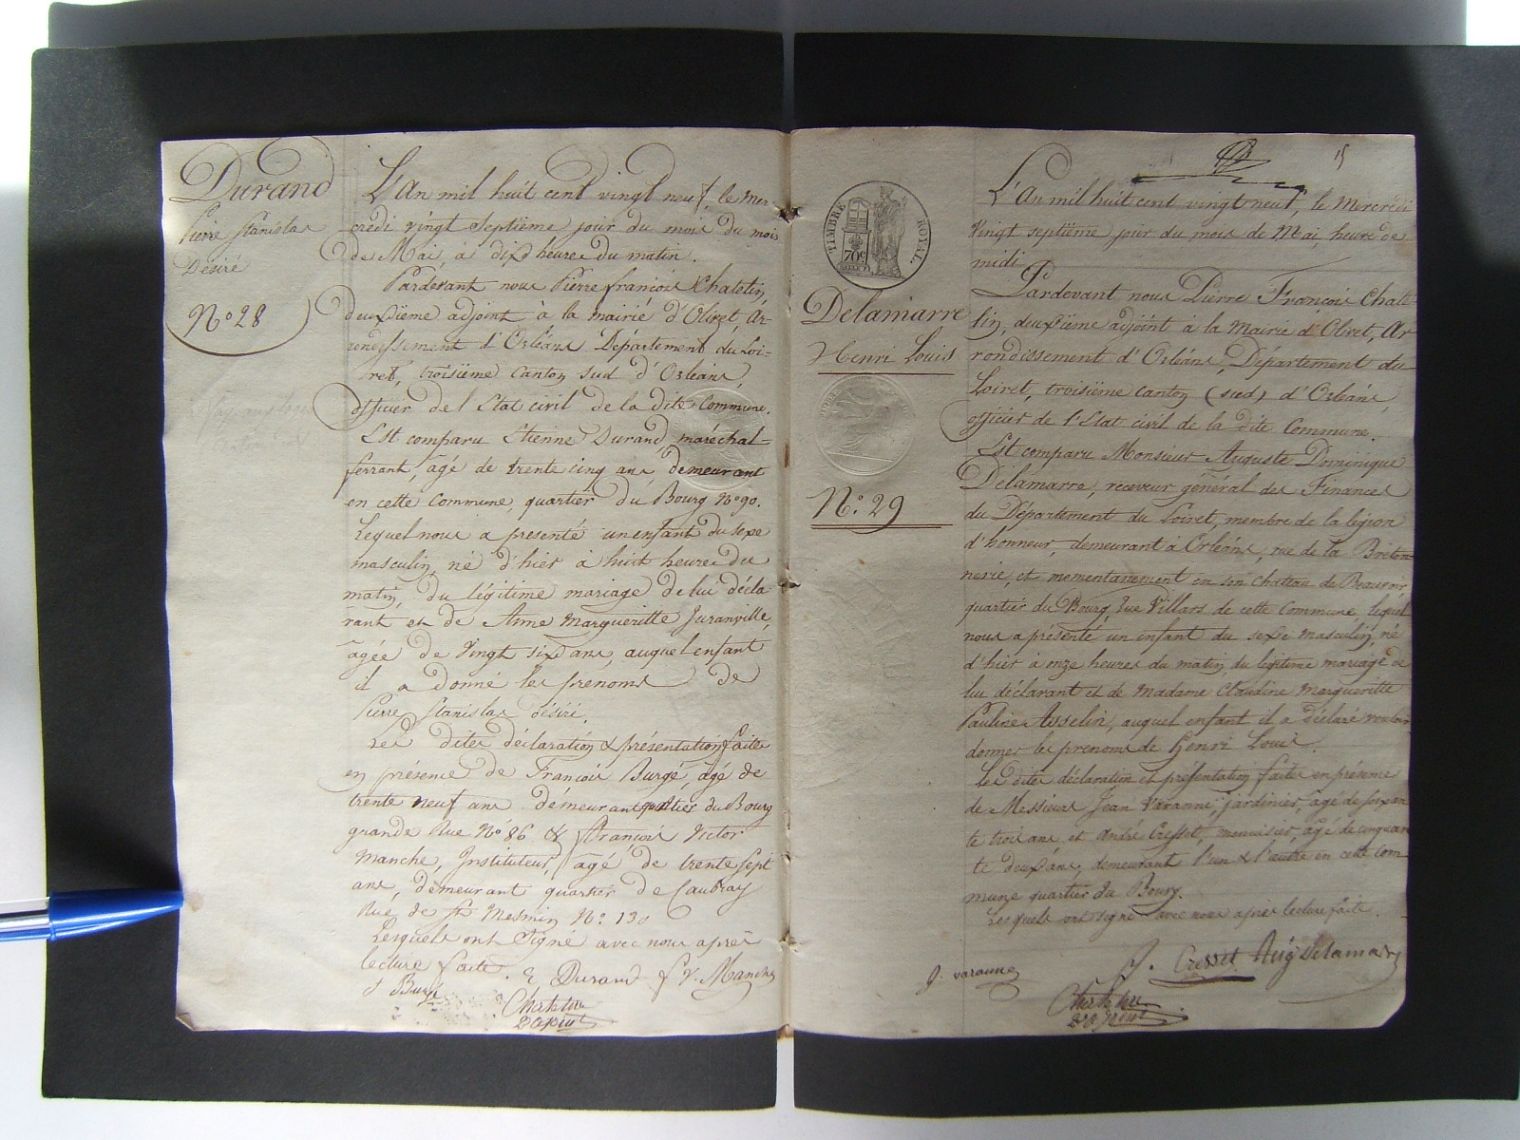 Durand
Pierre Stanislas
Désiré
No 28
L'An mil huit cent vingt neuf, le Mer
credi vingt septième jour du mois du mois
de Mai, à dix heures du matin.
Pardevant nous Pierre françois Chatelin,
deuxième adjoint à la mairie d'Olivet, Ar
rondissement d'Orléans Département du Loi=
ret, troisième Canton sud d'Orléans,
officier de l'Etat civil de la dite Commune.
Est comparu Etienne Durand, maréchal=
ferrant, âgé de trente cinq ans demeurant
en cette Commune, quartier du Bourg No 90.
Lequel nous a présenté un enfant du sexe
masculin, né d'hier à huit heures du
matin, du légitime mariage de lui décla
rant et de Anne Margueritte Juranville,
âgée de Vingt six ans, auquel enfant
il a donné les prenoms de
Pierre Stanislas désiré.
Les dites déclaration & présentation faite
en présence de François Burgé âgé de
trente neuf ans demeurant quartier du Bourg
grande Rue No 86 & François Victor
Manche, Instituteur, âgé de trente sept
ans, demeurant quartier de Caubray
Rue de St Mesmin No 130
Lesquels ont Signé avec nous après
lecture faite. E Durand f. V. Manche
f Burgé
Chatelin
2e adjoint
15
TIMBRE ROYAL.
70c
Delamarre
Henri Louis
No: 29
L'An mil huit cent vingt neuf, le Mercredi
Vingt septième jour du mois de Mai heure de
midi
Pardevant nous Pierre François Chate=
lin, deuxième adjoint à la Mairie d'Olivet, Ar
rondissement d'Orléans, Département du
Loiret, troisième Canton (sud) d'Orléans,
officier de l'Etat civil de la dite Commune.
Est comparu Monsieur Auguste Dominique
Delamarre, receveur général des Finances
du Département du Loiret, membre de la légion
d'honneur, demeurant à Orléans, rue de la Breton
nerie, et momentanement en son chateau de Beauvoir
quartier du Bourg, rue Villars de cette Commune, lequel
nous a présenté un enfant du sexe masculin, né
d'hier à onze heures du matin du légitime mariage de
lui déclarant et de Madame Claudine Margueritte
Pauline Asselin, auquel enfant il a déclaré vouloir
donner les prenoms de Henri Louis.
Les dites déclaration et présentation faites en présence
de Messieurs Jean Varanne, jardinier, âgé de soixan
te trois ans et André Cresset, menuisier, âgé de cinquan
te deux ans, demeurant l'un & l'autre en cette Com
mune quartier du Bourg.
Lesquels ont signé avec nous après lecture faite.
J. varanne A. Cresset Aug Delamarre
Chatelin
2e adjoint